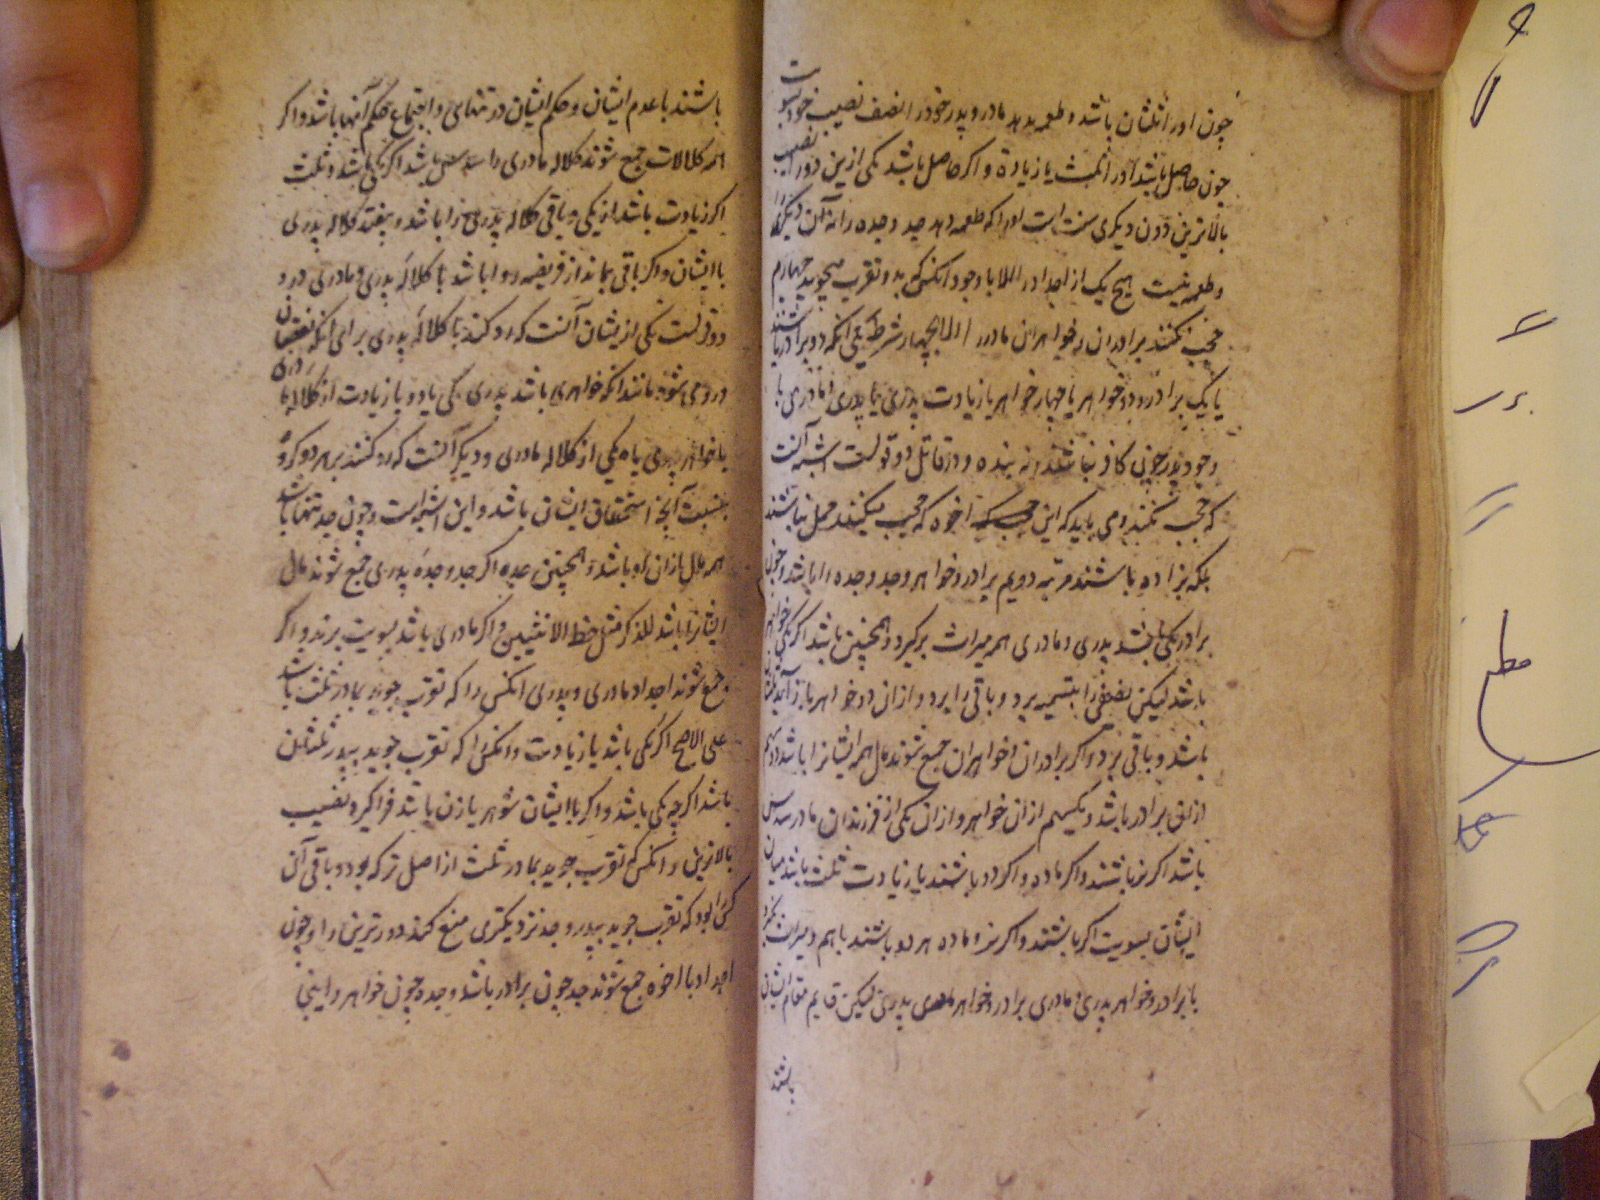 چون او را ثلثان باشد و طعمه بدهد مادر و پدر خود را نصف نصیب خود بسویت
چون حاصل باشد او را ثلث یا زیاده و اگر حاصل باشد یکی ازین دو را نصیب
بالاترین دون دیگری سنت است او را که طعمه دهد جد و جده را نه آن دیگر را
و طعمه نیست هیچ یک از اجداد را الا با وجود آنکس که بدو تقرب میجوید چهارم
حجب نکنند برادران و خواهران مادر را الا بچهار شرط یکی آنکه دو برادر باشند
یا یک برادر و دو خواهر یا چهار خواهر یا زیادت پدری یا پدری و مادری با
وجود پدر چون کافر نباشند و نه بنده و در قاتل دو قولست اشبه آنست
که حجب نکند و می باید که این اخوه که حجب میکنند حمل نباشند
بلکه بزاده باشند مرتبه دویم برادر و خواهر و جد و جده را باشد و چون
برادر یکی باشد پدری و مادری همه میراث برگیرد و همچنین باشد اگر یکی خواهر
باشد لیکن نصفی را بتسمیه برد و باقی را برد و از ان دو خواهر یا زیاده ثلثان
باشد و باقی برد و اگر برادران و خواهران جمع شوند مال همه ایشانرا باشد دو سهم
از ان برادر باشد و یکسهم از ان خواهر و از ان یکی از فرزندان مادر سدس
باشد اگر نر باشند و اگر ماده و اگر دو باشند یا زیادت ثلث باشد میان
ایشان بسویت اگر نر باشند و اگر نر و ماده هر دو باشند باهم و میراث نگیرد
با برادر و خواهر پدری و مادری برادر و خواهر پدری لیکن قایم مقام ایشان
باشند
باشند با عدم ایشان و حکم ایشان در تنهایی و اجتماع حکم آنها باشد و اگر
همه کلالات جمع شوند کلاله مادری را سدس باشد اگر یکی باشد و ثلث
اگر زیادت باشد از یکی و باقی کلاله پدری را باشد و بیفتد کلاله پدری
با ایشان و اگر باقی بماند از فریضه روا باشد با کلاله پدری و مادری در و
دو قولست یکی ازیشان آنست که رد کند با کلاله پدری برای آنکه نقصان
درو می شود مانند آنکه خواهری باشد پدری یکی یا دو یا زیادت از کلاله مادری
با خواهر پدری یا یکی از کلاله مادری و دیگر آنست که رد کنند بر هر دو گروه
بنسبت آنچه استحقاق ایشان باشد و این اشبه است و چون جد تنها باشد
همه مال از ان او باشد و همچنین جده اگر جد و جده پدری جمع شوند مال
ایشانرا باشد للذکر مثل حظ الانثیین و اگر مادری باشد بسویت برند و اگر
جمع شوند اجداد مادری و پدری آنکس را که تقرب جوید بمادر ثلث باشد
علی الاصح اگر یکی باشد یا زیادت و آنکس را که تقرب جوید بپدر ثلثان
باشد اگرچه یکی باشد و اگر با ایشان شوهر یا زن باشد فراگیرد نصیب
بالاترین و آنکس که تقرب جوید بمادر ثلث از اصل ترکه بود و باقی آن
کس را بود که تقرب جوید بپدر و جد نزدیکتری منع کند دورترین را و چون
اجداد با اخوه جمع شوند جد چون برادر باشد و جده چون خواهر و اینجا